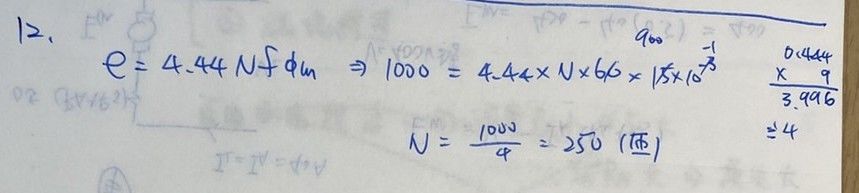 12.
900
e = 4.44 N f φm ⇒ 1000 = 4.44 × N × 60 × 15 × 10⁻³ ⁻¹
0.444
× 9
3.996
≒ 4
N = 1000/4 = 250 (匝)